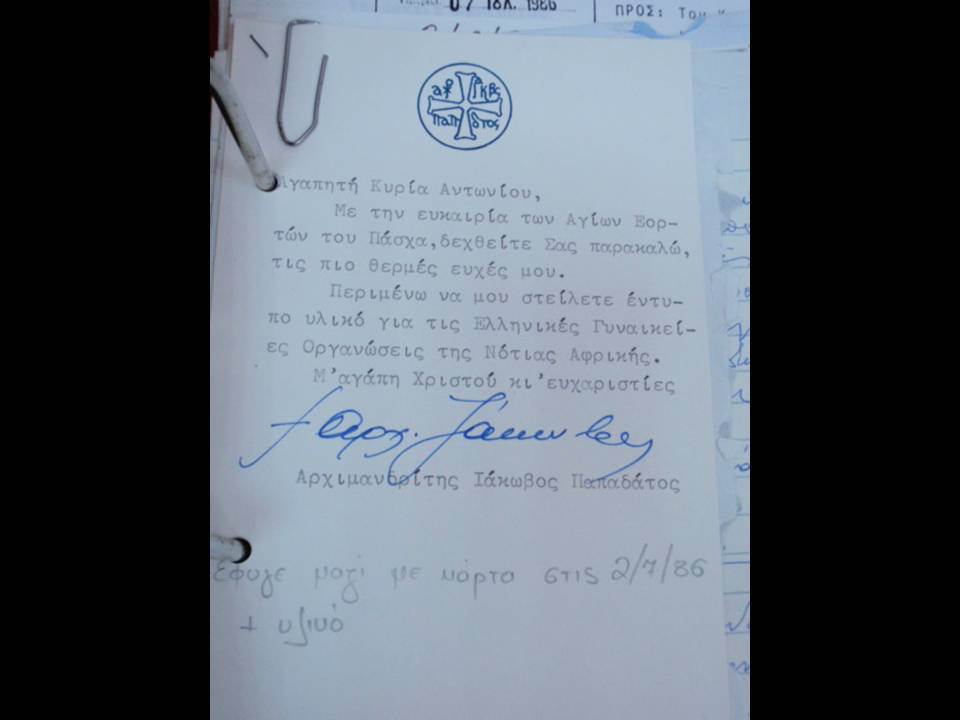 07 ΙΟΥΛ. 1986
ΠΡΟΣ: Τον
Αγαπητή Κυρία Αντωνίου,
Με την ευκαιρία των Αγίων Εορ-
τών του Πάσχα,δεχθείτε Σας παρακαλώ,
τις πιο θερμές ευχές μου.
Περιμένω να μου στείλετε έντυ-
πο υλικό για τις Ελληνικές Γυναικεί-
ες Οργανώσεις της Νότιας Αφρικής.
Μ'αγάπη Χριστού κι'ευχαριστίες
Αρχ. Ιάκωβος
Αρχιμανδρίτης Ιάκωβος Παπαδάτος
έφυγε μαζί με κάρτα στις 2/7/86
+ υλικό